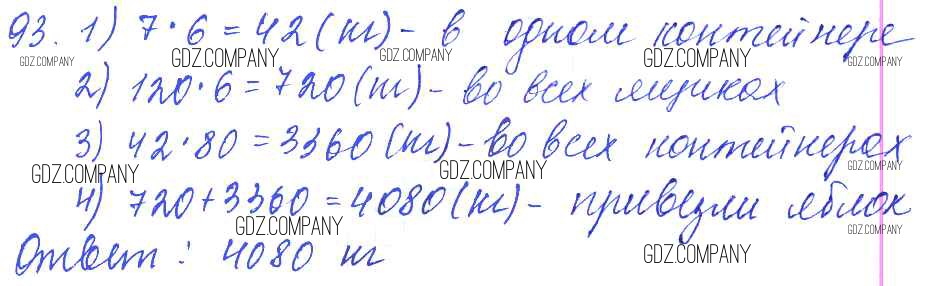 93. 1) 7·6=42(кг)- в одном контейнере
GDZ.COMPANY GDZ.COMPANY GDZ.COMPANY GDZ.COMPANY GDZ.COMPANY
2) 120·6=720(кг)- во всех ящиках
3) 42·80=3360(кг)-во всех контейнерах
GDZ.COMPANY GDZ.COMPANY GDZ.COMPANY
4) 720+3360=4080(кг)- привезли яблок
GDZ.COMPANY GDZ.COMPANY
Ответ: 4080 кг
GDZ.COMPANY